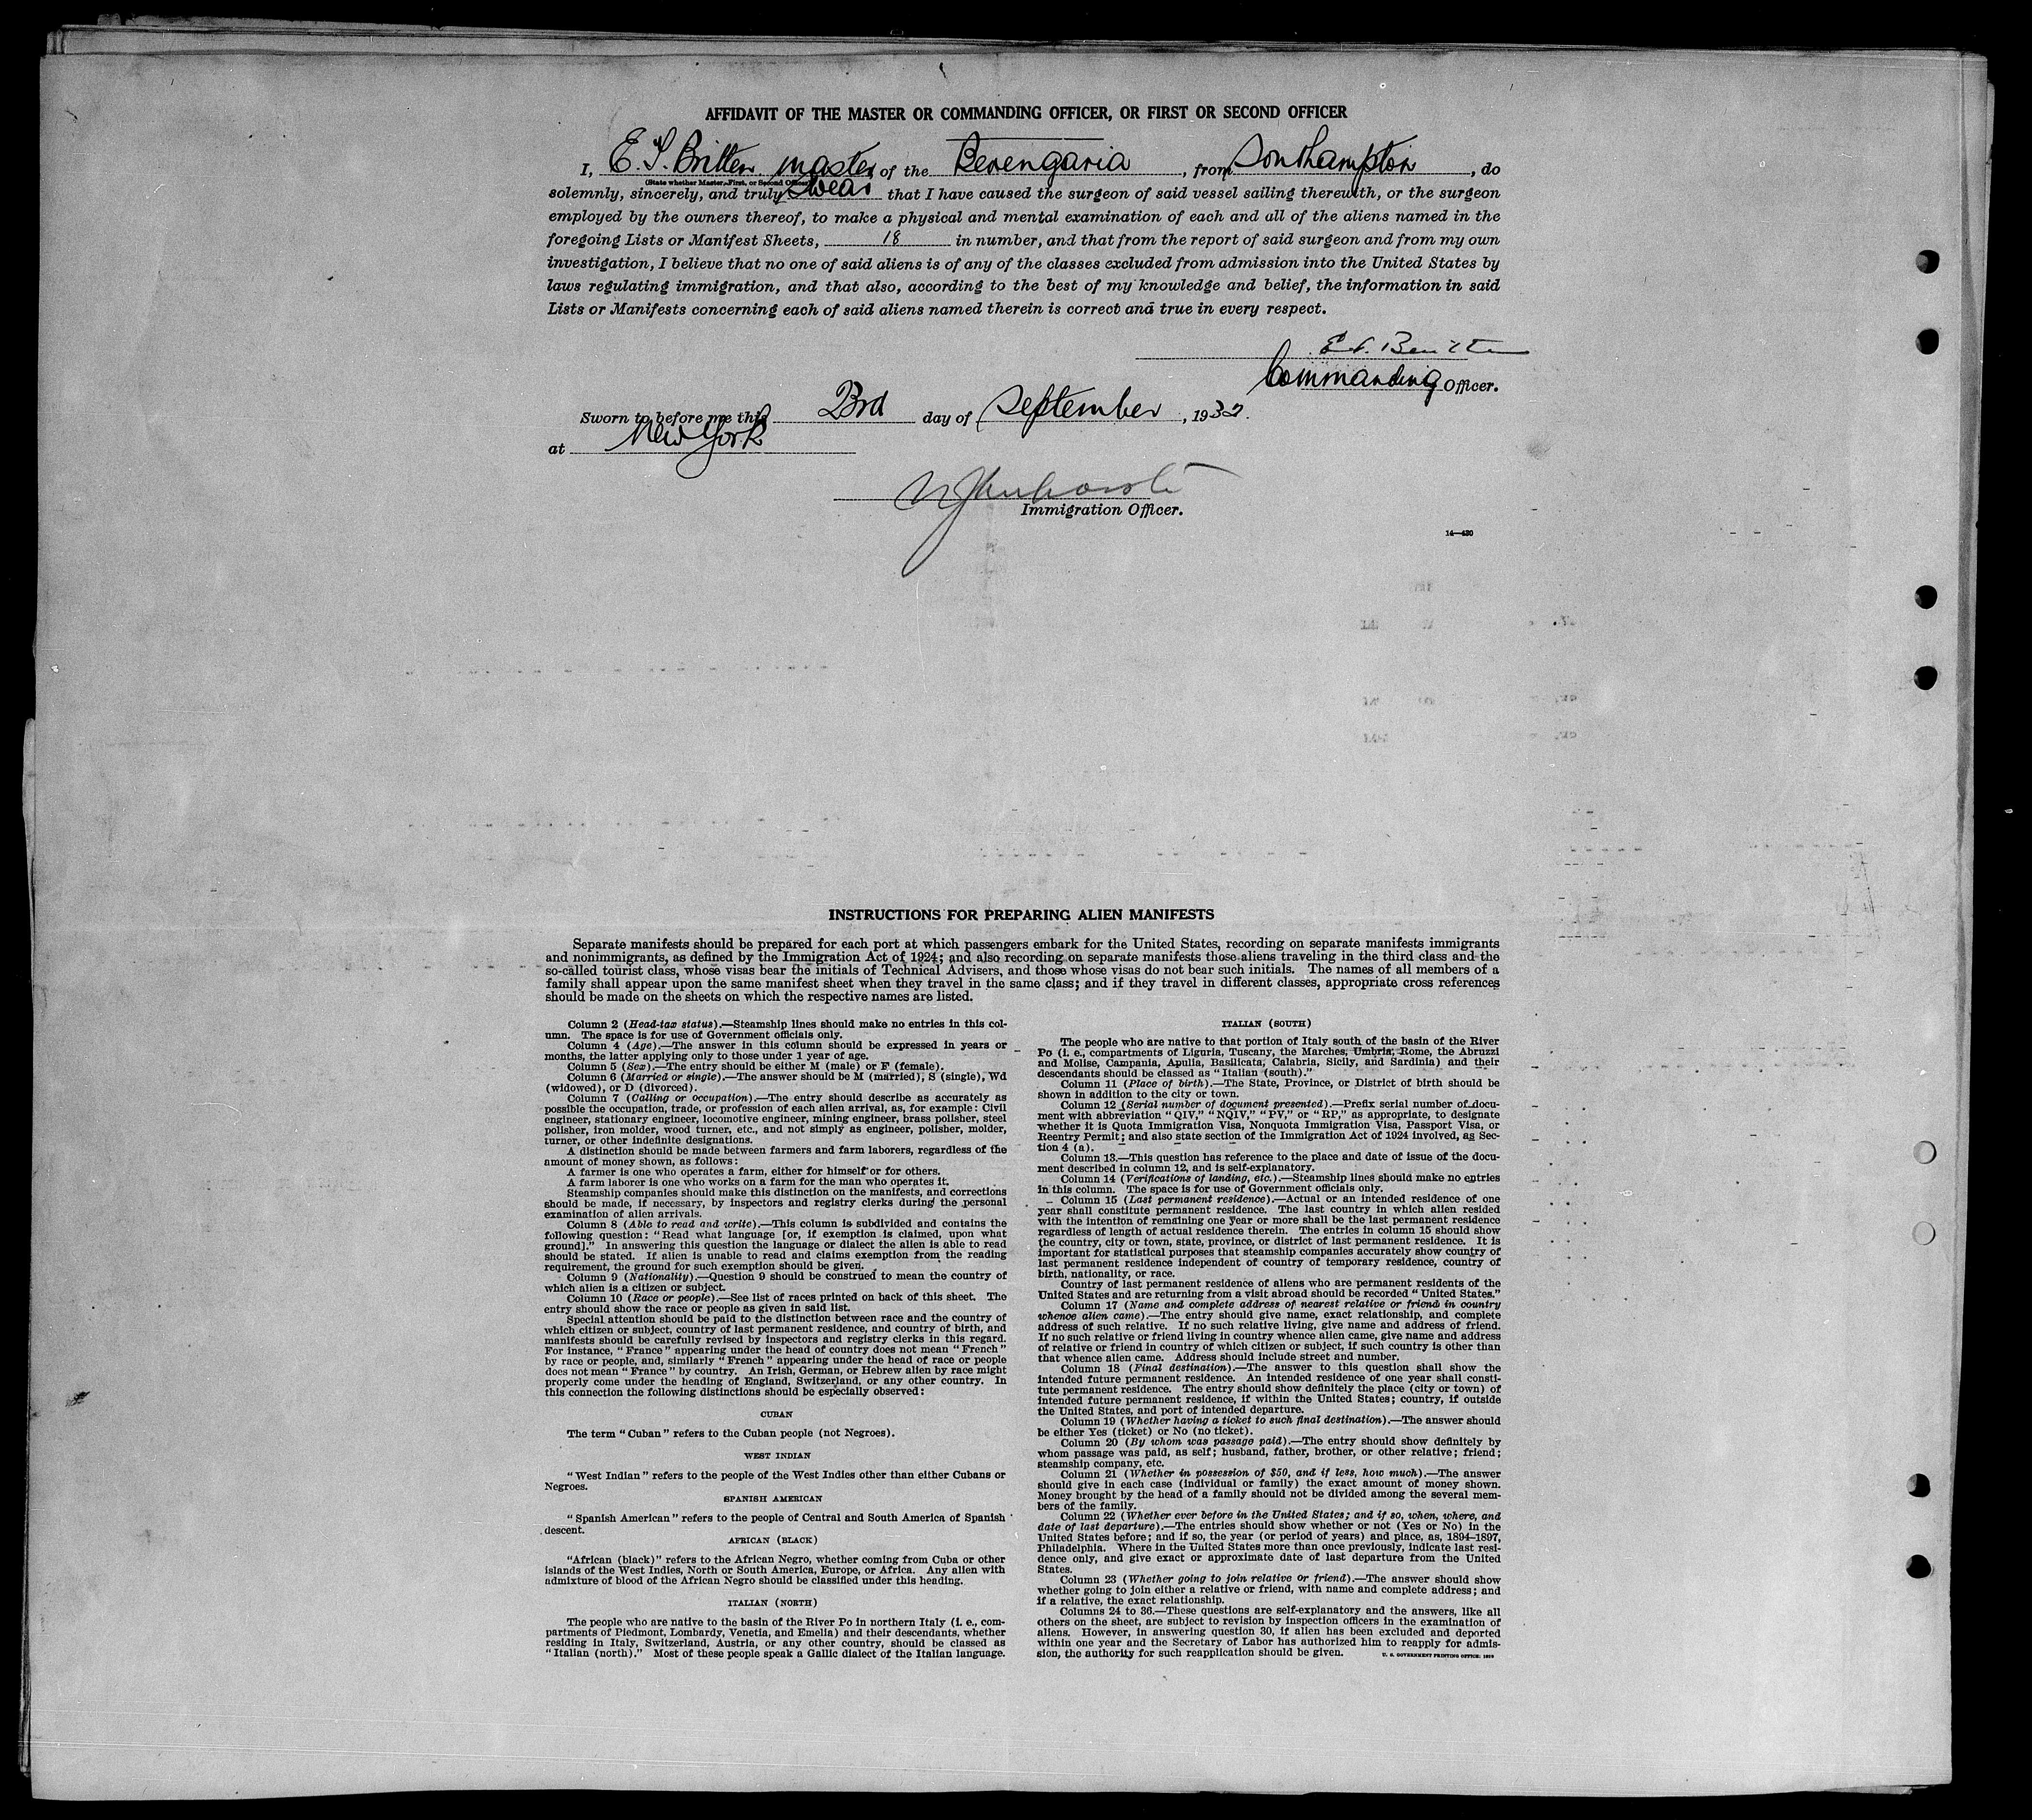 AFFIDAVIT OF THE MASTER OR COMMANDING OFFICER, OR FIRST OR SECOND OFFICER
I, E. S. Britten master, of the Berengaria, from Southampton, do
(State whether Master, First, or Second Officer)
solemnly, sincerely, and truly swear that I have caused the surgeon of said vessel sailing therewith, or the surgeon
employed by the owners thereof, to make a physical and mental examination of each and all of the aliens named in the
foregoing Lists or Manifest Sheets, 18 in number, and that from the report of said surgeon and from my own
investigation, I believe that no one of said aliens is of any of the classes excluded from admission into the United States by
laws regulating immigration, and that also, according to the best of my knowledge and belief, the information in said
Lists or Manifests concerning each of said aliens named therein is correct and true in every respect.
E. S. Britten
Commanding Officer.
Sworn to before me this 23rd day of September, 1932.
at New York
Immigration Officer.
14—430
INSTRUCTIONS FOR PREPARING ALIEN MANIFESTS
Separate manifests should be prepared for each port at which passengers embark for the United States, recording on separate manifests immigrants
and nonimmigrants, as defined by the Immigration Act of 1924; and also recording on separate manifests those aliens traveling in the third class and the
so-called tourist class, whose visas bear the initials of Technical Advisers, and those whose visas do not bear such initials. The names of all members of a
family shall appear upon the same manifest sheet when they travel in the same class; and if they travel in different classes, appropriate cross references
should be made on the sheets on which the respective names are listed.
Column 2 (Head-tax status).—Steamship lines should make no entries in this col-
umn. The space is for use of Government officials only.
Column 4 (Age).—The answer in this column should be expressed in years or
months, the latter applying only to those under 1 year of age.
Column 5 (Sex).—The entry should be either M (male) or F (female).
Column 6 (Married or single).—The answer should be M (married), S (single), Wd
(widowed), or D (divorced).
Column 7 (Calling or occupation).—The entry should describe as accurately as
possible the occupation, trade, or profession of each alien arrival, as, for example: Civil
engineer, stationary engineer, locomotive engineer, mining engineer, brass polisher, steel
polisher, iron molder, wood turner, etc., and not simply as engineer, polisher, molder,
turner, or other indefinite designations.
A distinction should be made between farmers and farm laborers, regardless of the
amount of money shown, as follows:
A farmer is one who operates a farm, either for himself or for others.
A farm laborer is one who works on a farm for the man who operates it.
Steamship companies should make this distinction on the manifests, and corrections
should be made, if necessary, by inspectors and registry clerks during the personal
examination of alien arrivals.
Column 8 (Able to read and write).—This column is subdivided and contains the
following question: "Read what language [or, if exemption is claimed, upon what
ground]." In answering this question the language or dialect the alien is able to read
should be stated. If alien is unable to read and claims exemption from the reading
requirement, the ground for such exemption should be given.
Column 9 (Nationality).—Question 9 should be construed to mean the country of
which alien is a citizen or subject.
Column 10 (Race or people).—See list of races printed on back of this sheet. The
entry should show the race or people as given in said list.
Special attention should be paid to the distinction between race and the country of
which citizen or subject, country of last permanent residence, and country of birth, and
manifests should be carefully revised by inspectors and registry clerks in this regard.
For instance, "France" appearing under the head of country does not mean "French"
by race or people, and, similarly "French" appearing under the head of race or people
does not mean "France" by country. An Irish, German, or Hebrew alien by race might
properly come under the heading of England, Switzerland, or any other country. In
this connection the following distinctions should be especially observed:
CUBAN
The term "Cuban" refers to the Cuban people (not Negroes).
WEST INDIAN
"West Indian" refers to the people of the West Indies other than either Cubans or
Negroes.
SPANISH AMERICAN
"Spanish American" refers to the people of Central and South America of Spanish
descent.
AFRICAN (BLACK)
"African (black)" refers to the African Negro, whether coming from Cuba or other
islands of the West Indies, North or South America, Europe, or Africa. Any alien with
admixture of blood of the African Negro should be classified under this heading.
ITALIAN (NORTH)
The people who are native to the basin of the River Po in northern Italy (i. e., com-
partments of Piedmont, Lombardy, Venetia, and Emelia) and their descendants, whether
residing in Italy, Switzerland, Austria, or any other country, should be classed as
"Italian (north)." Most of these people speak a Gallic dialect of the Italian language.
ITALIAN (SOUTH)
The people who are native to that portion of Italy south of the basin of the River
Po (i. e., compartments of Liguria, Tuscany, the Marches, Umbria, Rome, the Abruzzi
and Molise, Campania, Apulia, Basilicata, Calabria, Sicily, and Sardinia) and their
descendants should be classed as "Italian (south)."
Column 11 (Place of birth).—The State, Province, or District of birth should be
shown in addition to the city or town.
Column 12 (Serial number of document presented).—Prefix serial number of docu-
ment with abbreviation "QIV," "NQIV," "PV," or "RP," as appropriate, to designate
whether it is Quota Immigration Visa, Nonquota Immigration Visa, Passport Visa, or
Reentry Permit; and also state section of the Immigration Act of 1924 involved, as Sec-
tion 4 (a).
Column 13.—This question has reference to the place and date of issue of the docu-
ment described in column 12, and is self-explanatory.
Column 14 (Verifications of landing, etc.).—Steamship lines should make no entries
in this column. The space is for use of Government officials only.
Column 15 (Last permanent residence).—Actual or an intended residence of one
year shall constitute permanent residence. The last country in which alien resided
with the intention of remaining one year or more shall be the last permanent residence
regardless of length of actual residence therein. The entries in column 15 should show
the country, city or town, state, province, or district of last permanent residence. It is
important for statistical purposes that steamship companies accurately show country of
last permanent residence independent of country of temporary residence, country of
birth, nationality, or race.
Country of last permanent residence of aliens who are permanent residents of the
United States and are returning from a visit abroad should be recorded "United States."
Column 17 (Name and complete address of nearest relative or friend in country
whence alien came).—The entry should give name, exact relationship, and complete
address of such relative. If no such relative living, give name and address of friend.
If no such relative or friend living in country whence alien came, give name and address
of relative or friend in country of which citizen or subject, if such country is other than
that whence alien came. Address should include street and number.
Column 18 (Final destination).—The answer to this question shall show the
intended future permanent residence. An intended residence of one year shall consti-
tute permanent residence. The entry should show definitely the place (city or town) of
intended future permanent residence, if within the United States; country, if outside
the United States, and port of intended departure.
Column 19 (Whether having a ticket to such final destination).—The answer should
be either Yes (ticket) or No (no ticket).
Column 20 (By whom was passage paid).—The entry should show definitely by
whom passage was paid, as self; husband, father, brother, or other relative; friend;
steamship company, etc.
Column 21 (Whether in possession of $50, and if less, how much).—The answer
should give in each case (individual or family) the exact amount of money shown.
Money brought by the head of a family should not be divided among the several mem-
bers of the family.
Column 22 (Whether ever before in the United States; and if so, when, where, and
date of last departure).—The entries should show whether or not (Yes or No) in the
United States before; and if so, the year (or period of years) and place, as, 1894-1897,
Philadelphia. Where in the United States more than once previously, indicate last resi-
dence only, and give exact or approximate date of last departure from the United
States.
Column 23 (Whether going to join relative or friend).—The answer should show
whether going to join either a relative or friend, with name and complete address; and
if a relative, the exact relationship.
Columns 24 to 36.—These questions are self-explanatory and the answers, like all
others on the sheet, are subject to revision by inspection officers in the examination of
aliens. However, in answering question 30, if alien has been excluded and deported
within one year and the Secretary of Labor has authorized him to reapply for admis-
sion, the authority for such reapplication should be given.
U. S. GOVERNMENT PRINTING OFFICE: 1929